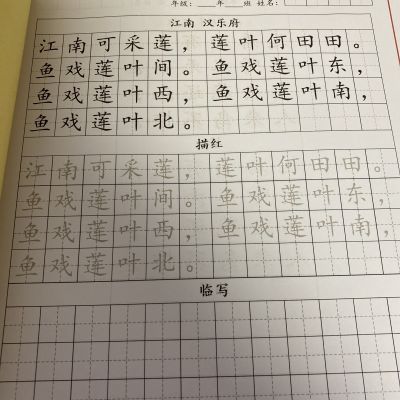 年级：____年__班 姓名：
江南 汉乐府
江南可采莲，莲叶何田田。
鱼戏莲叶间。鱼戏莲叶东，
鱼戏莲叶西，鱼戏莲叶南，
鱼戏莲叶北。
描红
江南可采莲，莲叶何田田。
鱼戏莲叶间。鱼戏莲叶东，
鱼戏莲叶西，鱼戏莲叶南，
鱼戏莲叶北。
临写